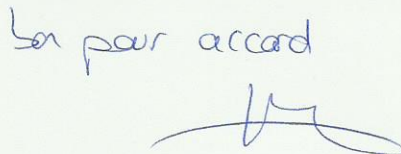 bon pour accord